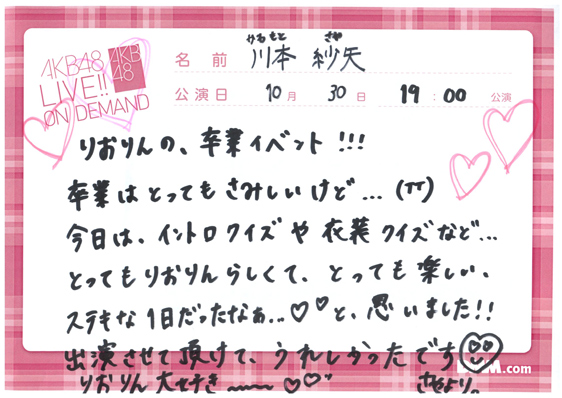 AKB48
LIVE!!
ON DEMAND
AKB
48
かわもと さや
名前 川本 紗矢
公演日 10月 30日 19:00 公演
りおりんの、卒業イベント!!!
卒業はとってもさみしいけど...(TT)
今日は、イントロクイズや衣装クイズなど...
とってもりおりんらしくて、とっても楽しい、
ステキな1日だったなぁ...♡♡と、思いました!!
出演させて頂けて、うれしかったです
りおりん大すき〜〜♡♡
さやより。
.com